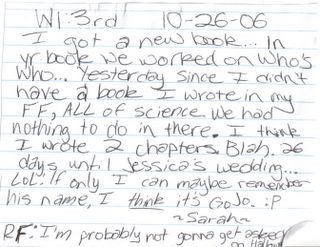 WI: 3rd 10-26-06
I got a new book... In
yr book we worked on Who's
Who... Yesterday since I didn't
have a book I wrote in my
FF, ALL of science. We had
nothing to do in there. I think
I wrote 2 chapters. Blah. 26
days until Jessica's wedding...
LOL. If only I can maybe remember
his name, I think it's GoJo. :P
~Sarah~
RF: I'm probably not gonna get asked
on